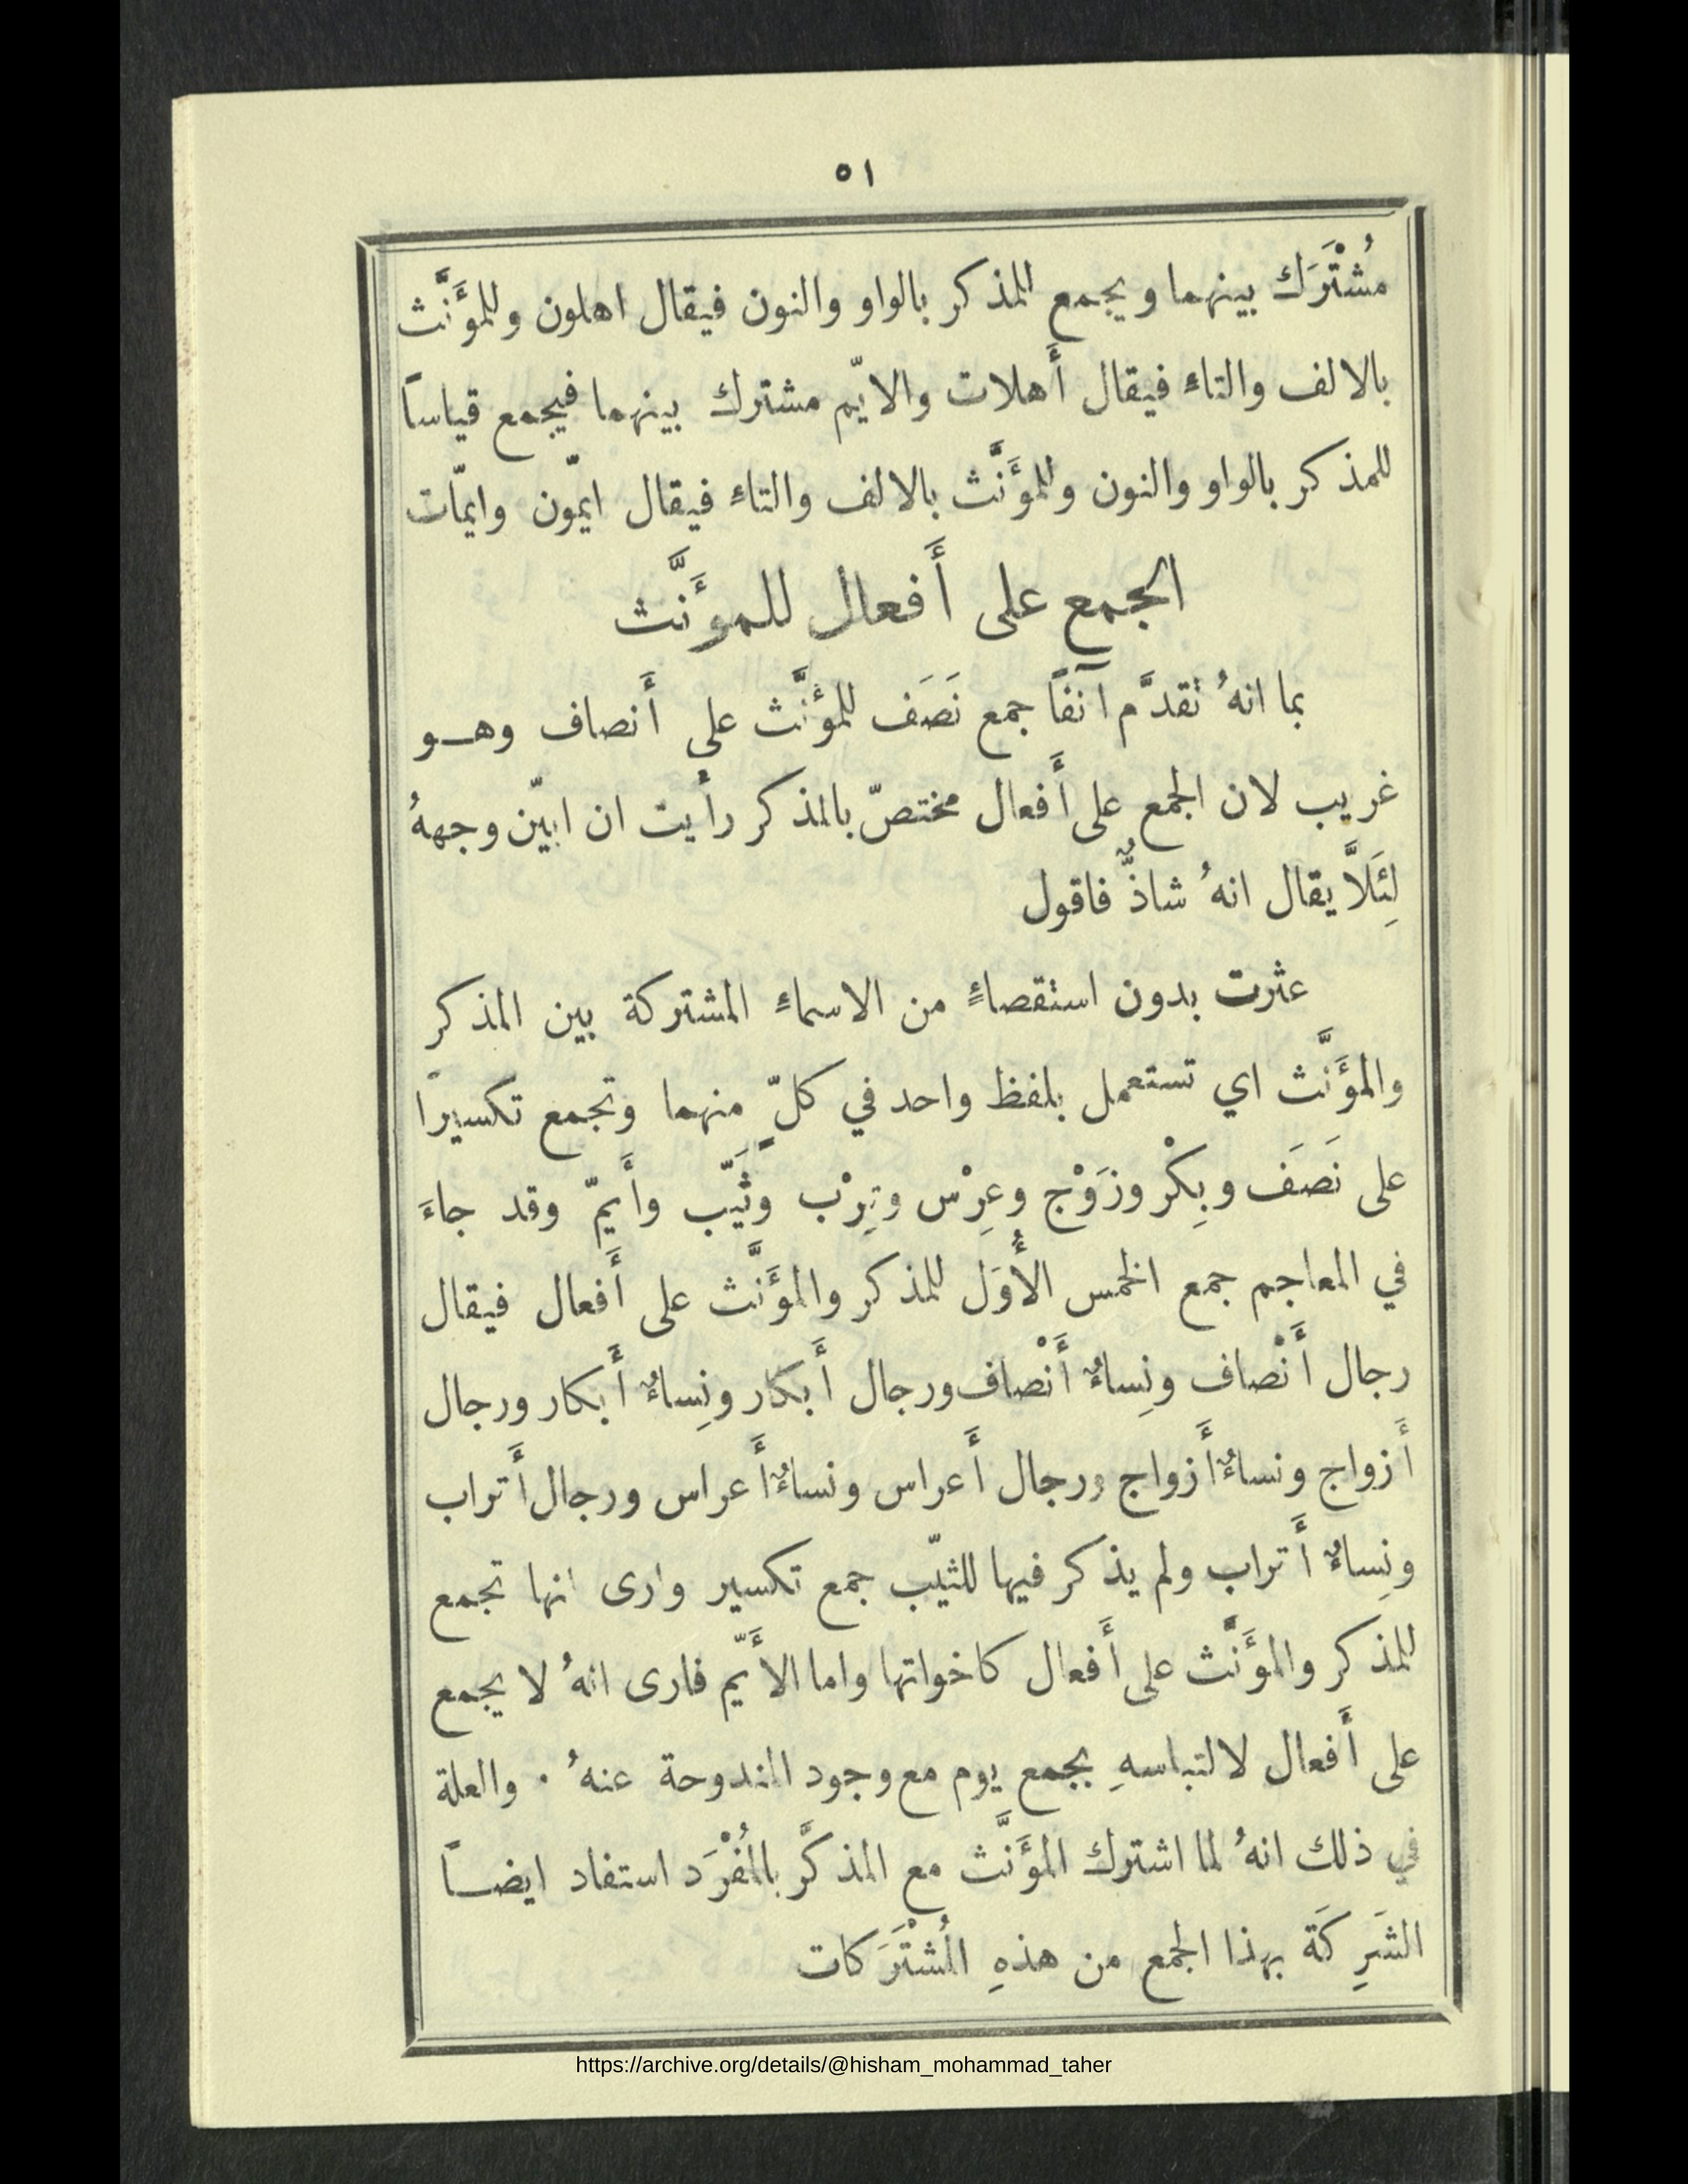 ٥١
مُشْتَرَك بينهما ويجمع المذكر بالواو والنون فيقال اهلون وللمؤَنَّث
بالالف والتاءِ فيقال أَهلات والايّم مشترك بينهما فيجمع قياساً
للمذكر بالواو والنون وللمؤَنَّث بالالف والتاءِ فيقال ايّمون وايمّات
الجمع على أَفعال للمؤَنَّث
بما انهُ تقدَّم آنفًا جمع نَصَف للمؤَنَّث على أَنصاف وهو
غريب لان الجمع على أَفعال مختصّ بالمذكر رأَيت ان ابيّن وجههُ
لِئَلاَّ يقال انهُ شاذٌّ فاقول
عثرت بدون استقصاءٍ من الاسماءِ المشتركة بين المذكر
والمؤَنَّث اي تستعمل بلفظ واحد في كلّ منهما وتجمع تكسيراً
على نَصَف وبِكْر وزَوْج وعِرْس وتِرْب وثَيّب وأَيمّ وقد جاءَ
في المعاجم جمع الخمس الأُوَل للمذكر والمؤَنَّث على أَفعال فيقال
رجال أَنْصاف ونِساءٌ أَنْصاف ورجال أَبكار ونِساءٌ أَبكار ورجال
أَزواج ونساءٌ أَزواج ورجال أَعراس ونساءٌ أَعراس ورجال أَتراب
ونِساءٌ أَتراب ولم يذكر فيها للثيّب جمع تكسير وارى انها تجمع
للمذكر والمؤَنَّث على أَفعال كاخواتها واما الأَيّم فارى انهُ لا يجمع
على أَفعال لالتباسهِ بجمع يوم مع وجود المندوحة عنهُ ٠ والعلة
في ذلك انهُ لما اشترك المؤَنَّث مع المذكَّر بالمُفْرَد استفاد ايضاً
الشَرِكَة بهذا الجمع من هذهِ المُشْتَرَكات
https://archive.org/details/@hisham_mohammad_taher